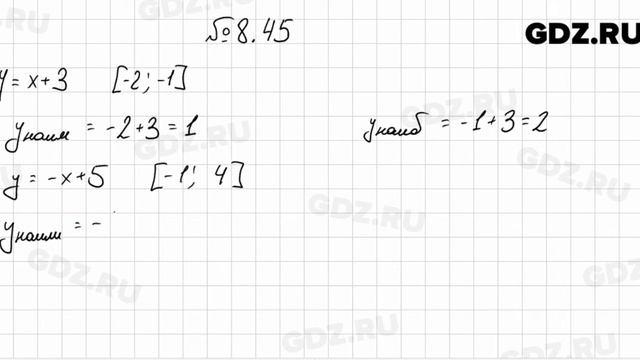 №8.45
GDZ.RU
y = x+3 [-2; -1]
yнаим = -2+3=1
yнаиб = -1+3=2
y = -x+5 [-1; 4]
yнаим = -
GDZ.RU
GDZ.RU
GDZ.RU
GDZ.RU
GDZ.RU
GDZ.RU
GDZ.RU
GDZ.RU